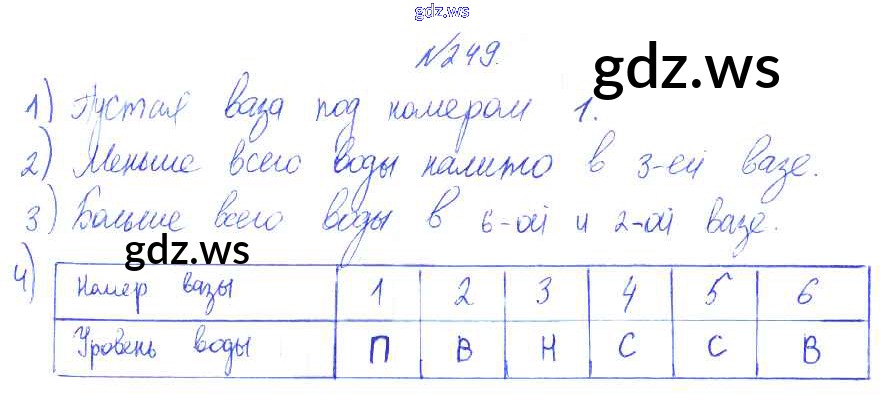 gdz.ws
№249.
gdz.ws
1) Пустая ваза под номером 1.
2) Меньше всего воды налито в 3-ей вазе.
3) Больше всего воды в 6-ой и 2-ой вазе.
gdz.ws
4)
Номер вазы 1 2 3 4 5 6
Уровень воды П В Н С С В